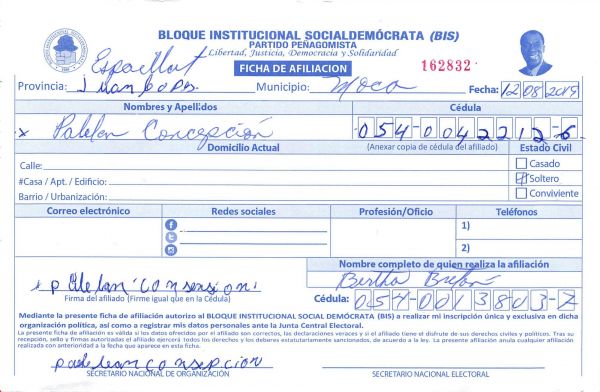 BLOQUE INSTITUCIONAL SOCIALDEMÓCRATA (BIS)
PARTIDO PEÑAGOMISTA
Libertad, Justicia, Democracia y Solidaridad
FICHA DE AFILIACION
162832
Espaillat
Provincia: Juan Lopez Municipio: Moca Fecha: 12/08/2019
Nombres y Apellidos Cédula
x Concepción 054-0042212-6
Domicilio Actual (Anexar copia de cédula del afiliado) Estado Civil
Calle: Casado
#Casa / Apt. / Edificio: Soltero
Barrio / Urbanización: Conviviente
Correo electrónico Redes sociales Profesión/Oficio Teléfonos
1)
2)
Nombre completo de quien realiza la afiliación
Bertha
Firma del afiliado (Firme igual que en la Cédula)
Cédula: 054-0013803-7
Mediante la presente ficha de afiliación autorizo al BLOQUE INSTITUCIONAL SOCIAL DEMÓCRATA (BIS) a realizar mi inscripción única y exclusiva en dicha
organización política, así como a registrar mis datos personales ante la Junta Central Electoral.
La presente ficha de afiliación es válida si los datos ofrecidos por el afiliado son correctos, las declaraciones veraces y si el afiliado tiene el disfrute de sus derechos civiles y políticos. Tras su
recepción, sello y firmas autorizadas el afiliado ejercerá todos los derechos y los deberes estatutariamente sancionados, de acuerdo a la ley. La presente afiliación anula cualquier afiliación
realizada con anterioridad a la fecha que aparece en esta ficha.
SECRETARIO NACIONAL DE ORGANIZACIÓN SECRETARIO NACIONAL ELECTORAL